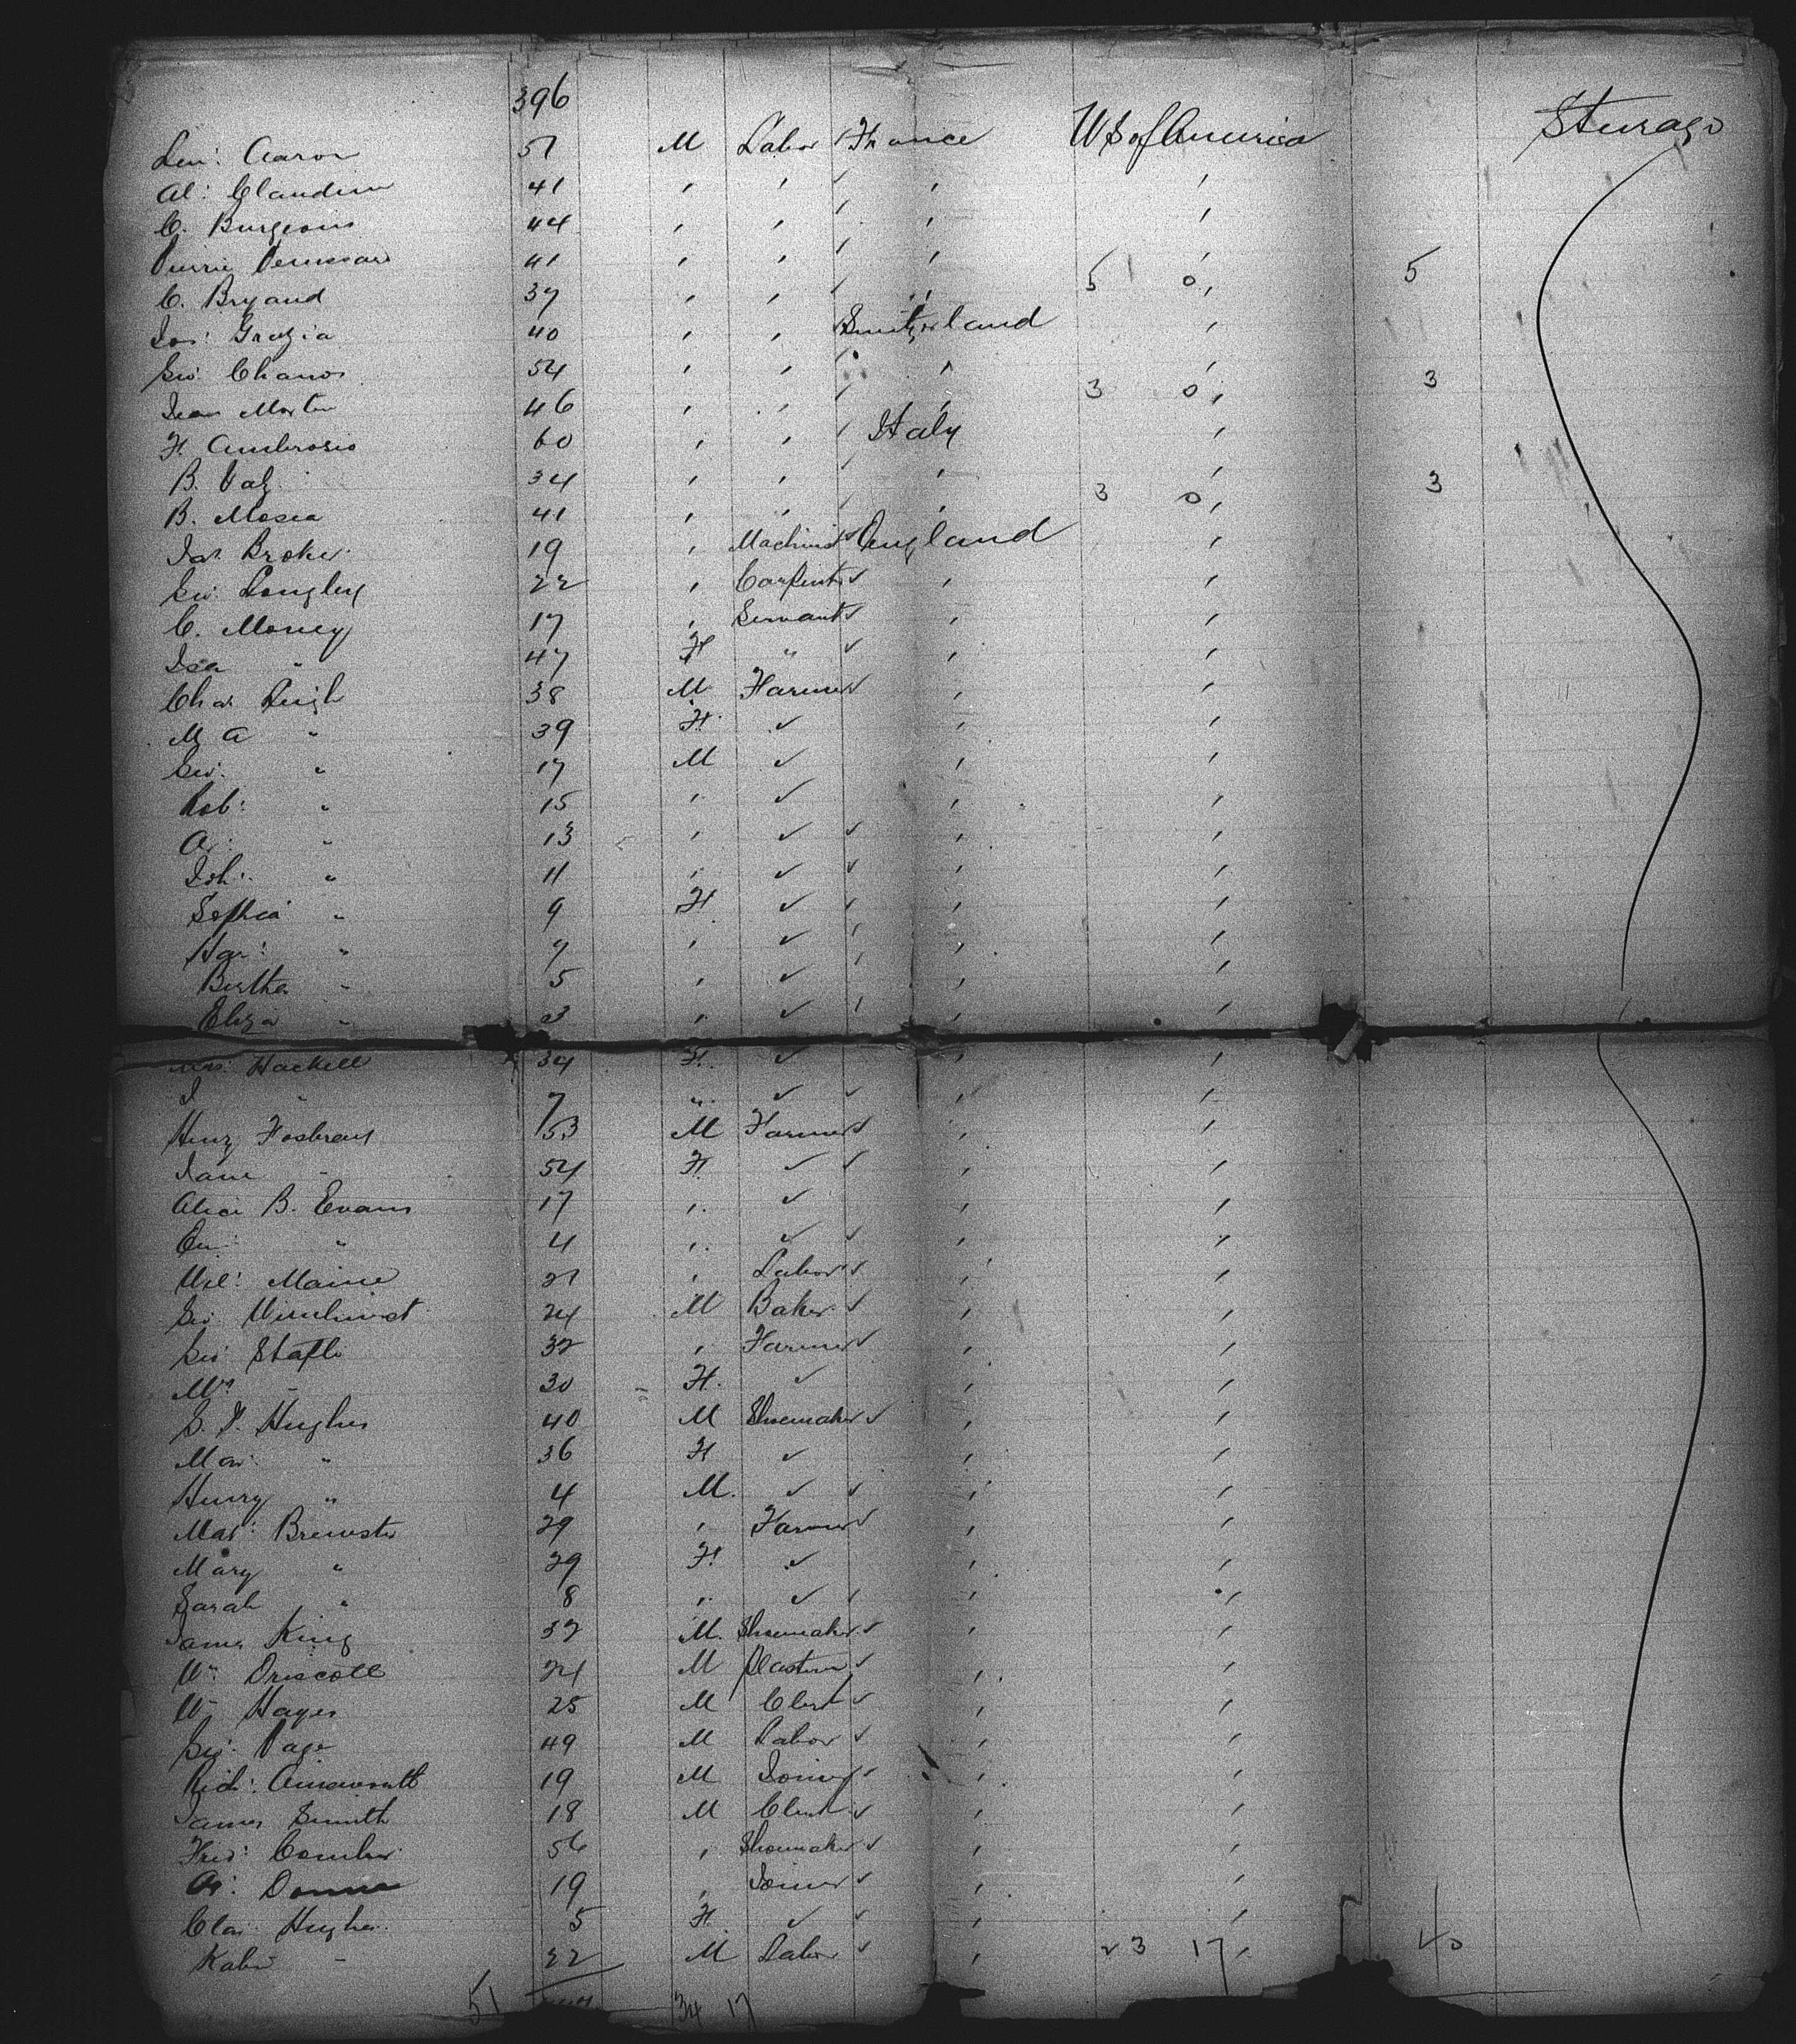 396
Aaron 51 M Labor France U S of America Steerage
Al: Claudin 41 ' ' ' '
C. Burgeois 44 ' ' ' '
41 ' ' ' ' 5 0 5
C. Bryand 37 ' ' ' '
Jos: Grazia 40 ' ' Switzerland '
Geo: Chanos 54 ' ' ' ' 3 0 3
Jean Martin 46 ' ' ' '
F. Ambrosio 60 ' ' Italy '
B. 34 ' ' ' '
B. Mosca 41 ' ' ' ' 3 0 3
Jas Broker 19 ' Machinist England '
Geo: Longley 22 ' Carpenter ' '
C. Money 17 ' Servant ' '
Isa " 47 F " ' '
Chas Leigh 38 M Farmer ' '
M A " 39 F ✓ ' '
Geo: " 17 M ✓ ' '
Rob: " 15 ' ✓ ' '
Ar: " 13 ' ✓ ' '
Joh: " 11 ' ✓ ' '
Sophia " 9 F ✓ ' '
Har: " 7 ' ✓ ' '
Bertha " 5 ' ✓ ' '
Eliza " 3 ' ✓ ' '
Mrs Hackell 34 F. ✓ ' '
J " 7 " ✓ ' '
Henry 53 M Farmer ' '
Jane " 54 F ✓ ' '
Alice B. Evans 17 ' ✓ ' '
" 4 ' ✓ ' '
Maine 21 ' Labor ' '
Geo 24 M Baker ' '
Geo: Staple 32 ' Farmer ' '
Mrs " 30 F. ✓ ' '
S. P. Hughes 40 M Shoemaker ' '
Mar: " 36 F ✓ ' '
Henry " 4 M. ✓ ' '
Mar: Brewster 29 ' Farmer ' '
Mary " 29 F. ✓ ' '
Sarah " 8 ' ✓ ' '
James King 32 M. Shoemaker ' '
Wm Driscoll 24 M Plasterer ' '
Wm Hayes 25 M Clerk ' '
Geo: Page 49 M Labor ' '
Rich: Ainsworth 19 M Joiner ' '
James Smith 18 M Clerk ' '
Fred: Comber 56 ' Shoemaker ' '
Ar: 19 ' Joiner ' '
Clar: Hughes 5 F ✓ ' '
22 M Labor ' ' 23 17 40
51 34 17